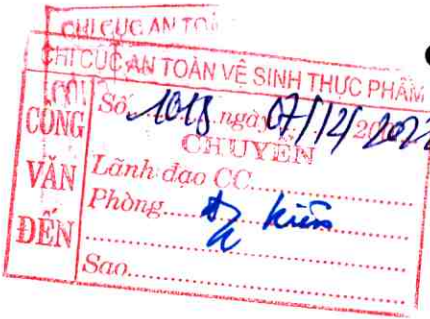 CHI CỤC AN TOÀ
CHI CỤC AN TOÀN VỆ SINH THỰC PHẨM
CÔNG VĂN ĐẾN
Số 1018 ngày 07/12/2022
CHUYỂN
Lãnh đạo CC
Phòng
Sao